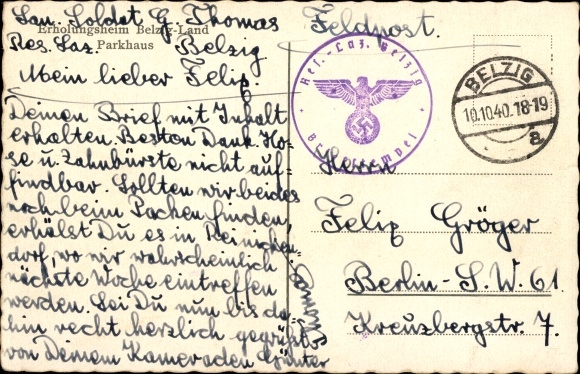 San. Soldat G. Thomas
Erholungsheim Belzig-Land
Res. Laz. Belzig
Parkhaus
Mein lieber Felix.
Deinen Brief mit Inhalt
erhalten. Besten Dank. Ho-
se u. Zahnbürste nicht auf-
findbar. Sollten wir beides
noch beim Packen finden,
erhälst Du es in Reinicken-
dorf, wo wir wahrscheinlich
nächste Woche eintreffen
werden. Sei Du nun bis da-
hin recht herzlich gegrüßt
von Deinem Kameraden Günter
Thomas
Feldpost.
Res.-Laz. Belzig
Briefstempel
BELZIG
10.10.40.18-19
a
Herrn
Felix Gröger
Berlin-S.W. 61.
Kreuzbergstr. 7.